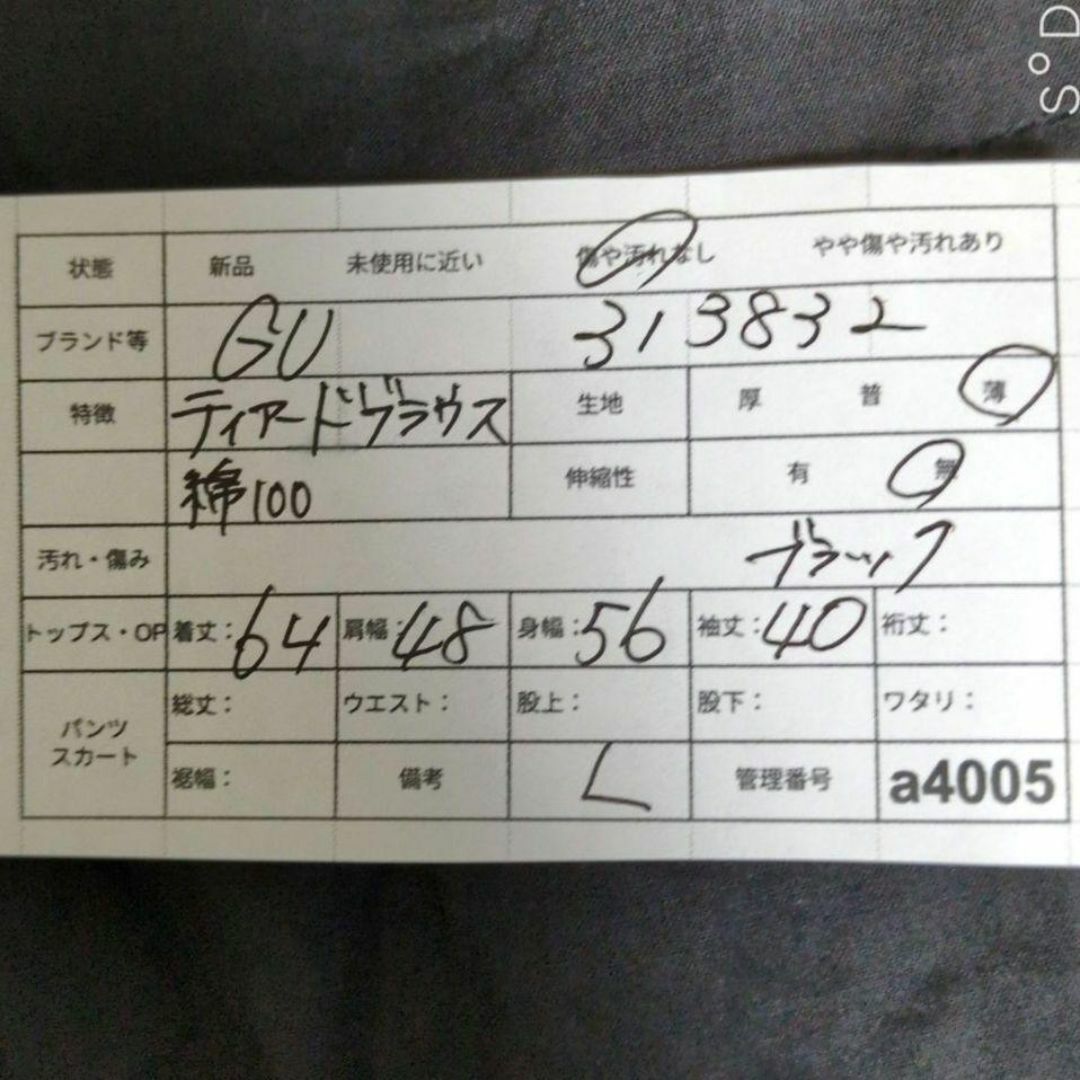 S°D
状態 新品 未使用に近い 傷や汚れなし やや傷や汚れあり
ブランド等 GU 313832
特徴 ティアードブラウス 生地 厚 普 薄
綿100 伸縮性 有 無
汚れ・傷み ブラック
トップス・OP 着丈:64 肩幅:48 身幅:56 袖丈:40 裄丈:
パンツ スカート 総丈: ウエスト: 股上: 股下: ワタリ:
裾幅: 備考 L 管理番号 a4005